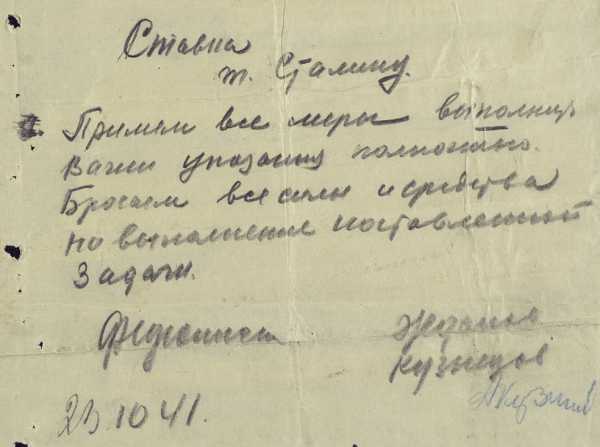 Ставка
т. Сталину.
Примем все меры выполнить
Ваши указания полностью.
Бросаем все силы и средства
на выполнение поставленной
Задачи.
Федюнинский Жданов
Кузнецов
23 10 41.